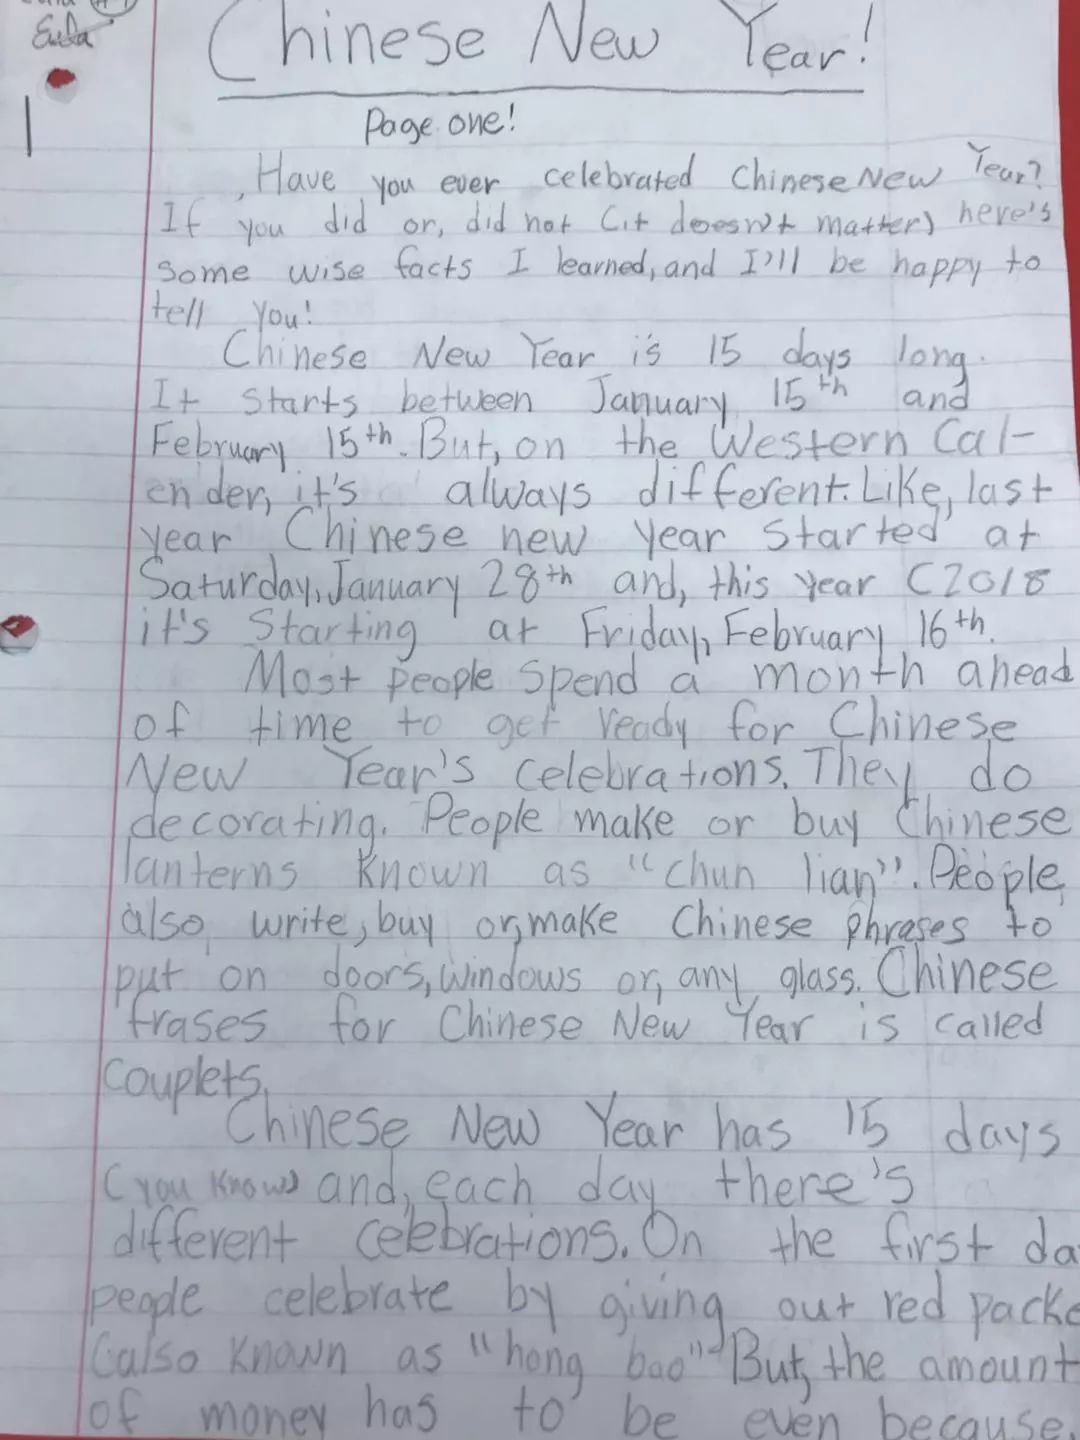 Chinese New Year!
Page one!
Have you ever celebrated Chinese New Year?
If you did or, did not (it doesn't matter) here's
some wise facts I learned, and I'll be happy to
tell you!
Chinese New Year is 15 days long.
It starts between January 15th and
February 15th. But, on the Western Cal-
ender, it's always different. Like, last
year Chinese new year started at
Saturday, January 28th and, this year (2018
it's Starting at Friday, February 16th.
Most people spend a month ahead
of time to get ready for Chinese
New Year's celebrations. They do
decorating. People make or buy Chinese
lanterns known as "chun lian". People,
also, write, buy or, make Chinese phrases to
put on doors, windows or, any glass. Chinese
frases for Chinese New Year is called
couplets.
Chinese New Year has 15 days
(you know) and, each day there's
different celebrations. On the first da
people celebrate by giving out red packe
(also known as "hong bao" But, the amount
of money has to be even because,